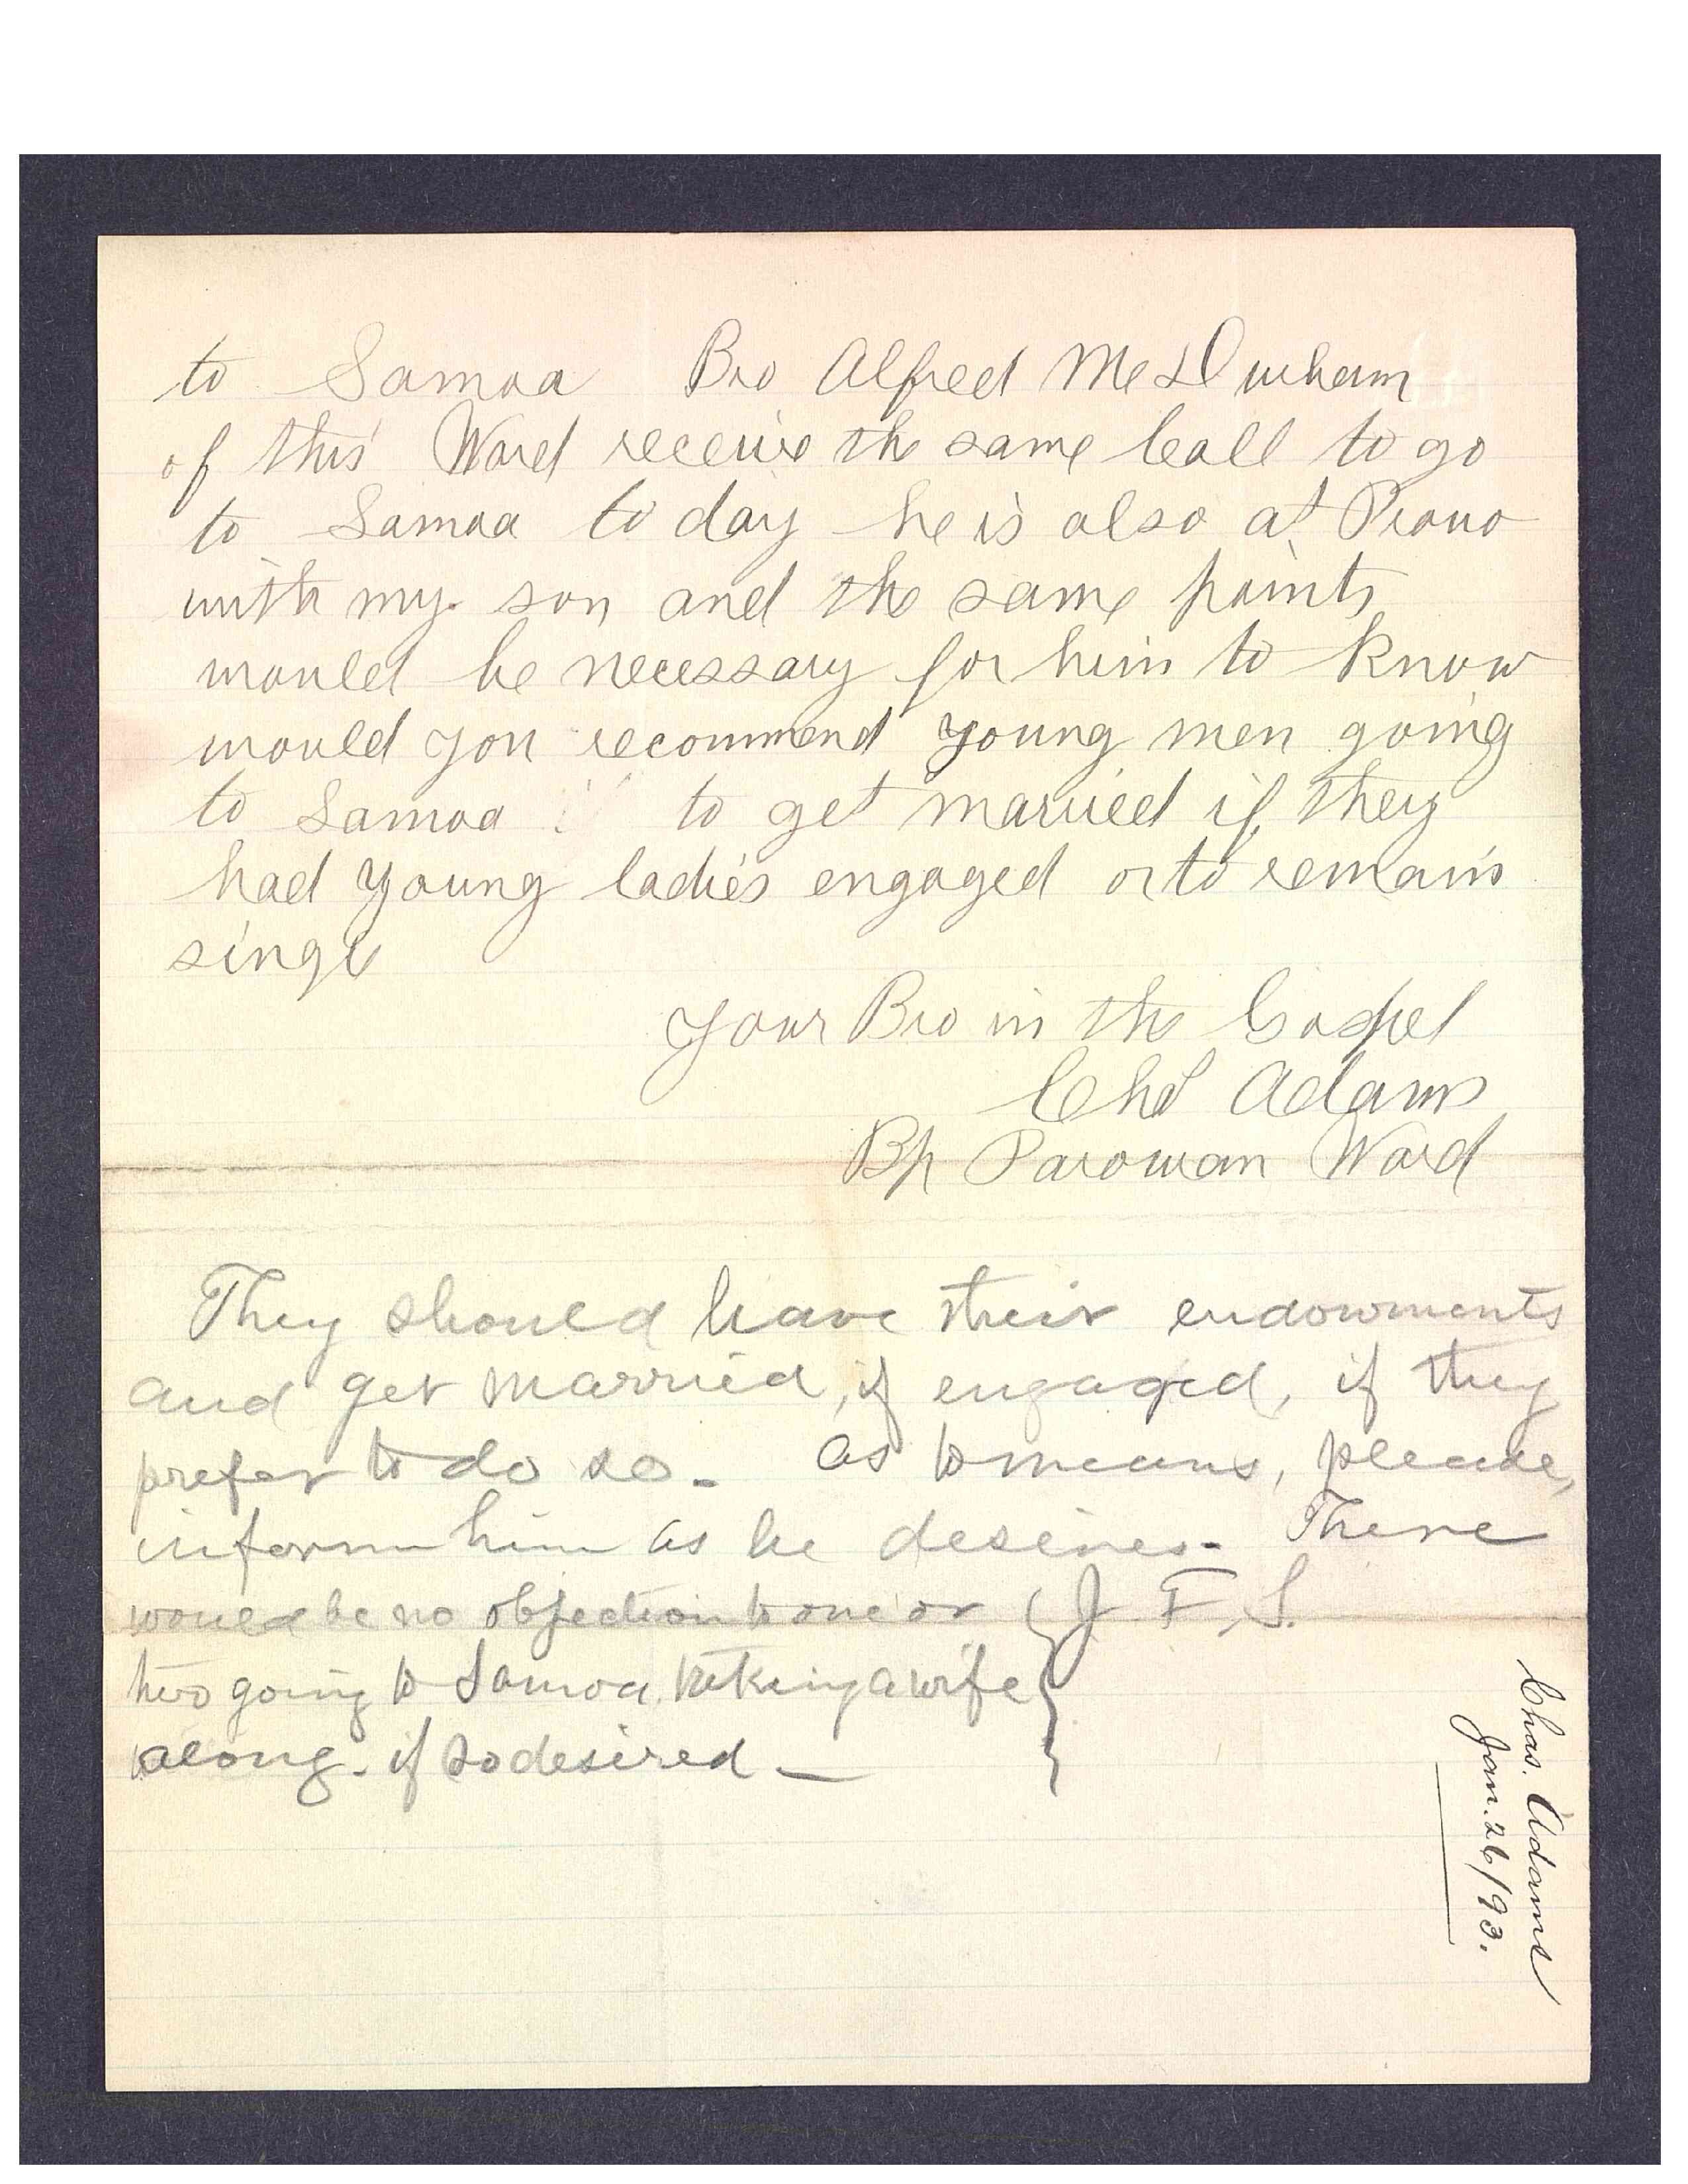 to Samoa Bro Alfred M Durham
of this Ward receive the same Call to go
to Samoa to day he is also at Provo
with my son and the same points
would be necessary for him to know
would you recommend young men going
to Samoa to get married if they
had young ladies engaged or to remain
single
Your Bro in the Gospel
Chs Adams
Bp Parowan Ward
They should have their endowments
and get married, if engaged, if they
prefer to do so. As to means, please,
inform him as he desires. There
would be no objection to one or
two going to Samoa taking a wife
along. if so desired —
J. F. S.
Chas. Adams
Jan. 26/93.